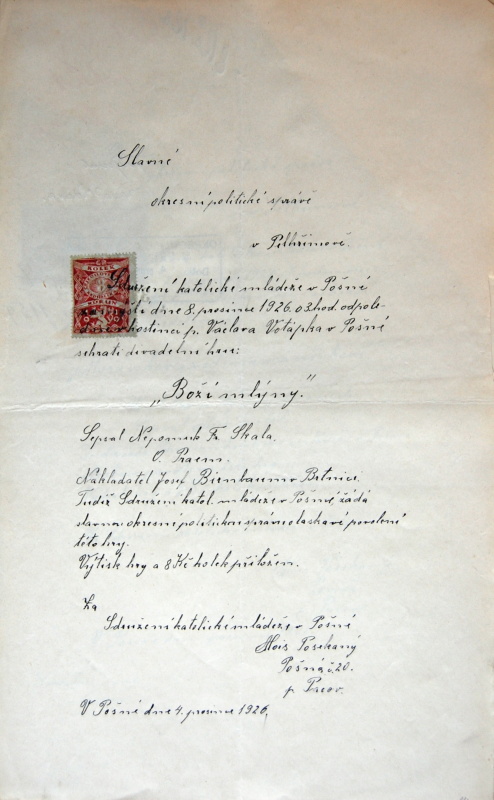 Slavné
okresní politické správě
v Pelhřimově.
Sdružení katolické mládeže v Pošné
dne 8. prosince 1926. o 3 hod. odpole-
hostinci p. Václava Votápka v Pošné
sehrati divadelní hru:
„Boží mlýny."
Sepsal Nepomuk Fr. Skala,
O. Praem.
Nakladatel Josef Birnbaum v Brtnici.
Tudíž Sdružení katol. mládeže v Pošné žádá
slavnou okresní politickou správu o laskavé povolení
této hry.
Výtisk hry a 8 Kč kolek přiložen.
Za
Sdružení katolické mládeže v Pošné
Alois Posekaný
Pošná č. 20.
p. Pacov.
V Pošné dne 4. prosince 1926.
KOLEK